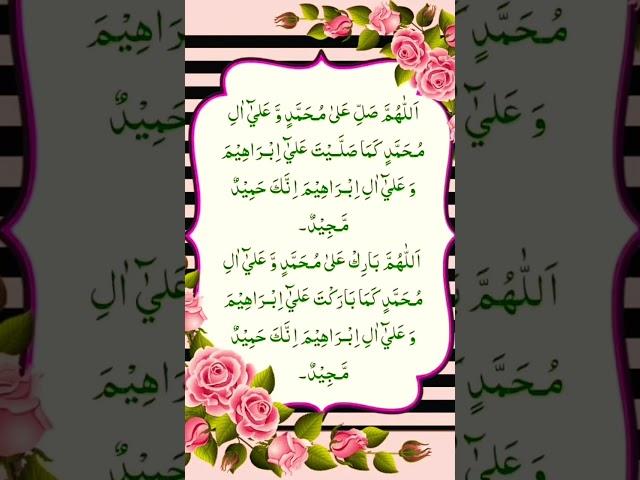 اَللّٰهُمَّ صَلِّ عَلٰى مُحَمَّدٍ وَّ عَلٰٓي اٰلِ
مُحَمَّدٍ كَمَا صَلَّيْتَ عَلٰٓي اِبْرَاهِيْمَ
وَ عَلٰٓي اٰلِ اِبْرَاهِيْمَ اِنَّكَ حَمِيْدٌ
مَّجِيْدٌ۔
اَللّٰهُمَّ بَارِكْ عَلٰى مُحَمَّدٍ وَّ عَلٰٓي اٰلِ
مُحَمَّدٍ كَمَا بَارَكْتَ عَلٰٓي اِبْرَاهِيْمَ
وَ عَلٰٓي اٰلِ اِبْرَاهِيْمَ اِنَّكَ حَمِيْدٌ
مَّجِيْدٌ۔